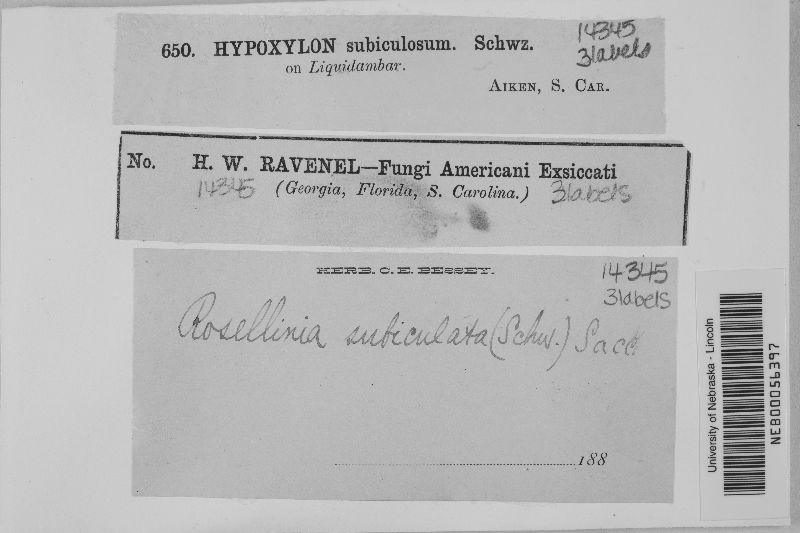 650. HYPOXYLON subiculosum. Schwz.
on Liquidambar.
AIKEN, S. CAR.
14345
3labels
No. H. W. RAVENEL—Fungi Americani Exsiccati
14345 (Georgia, Florida, S. Carolina.) 3labels
HERB. C. E. BESSEY.
14345
3labels
Rosellinia subiculata (Schw.) Sacc
188
University of Nebraska - Lincoln
NEB00056397